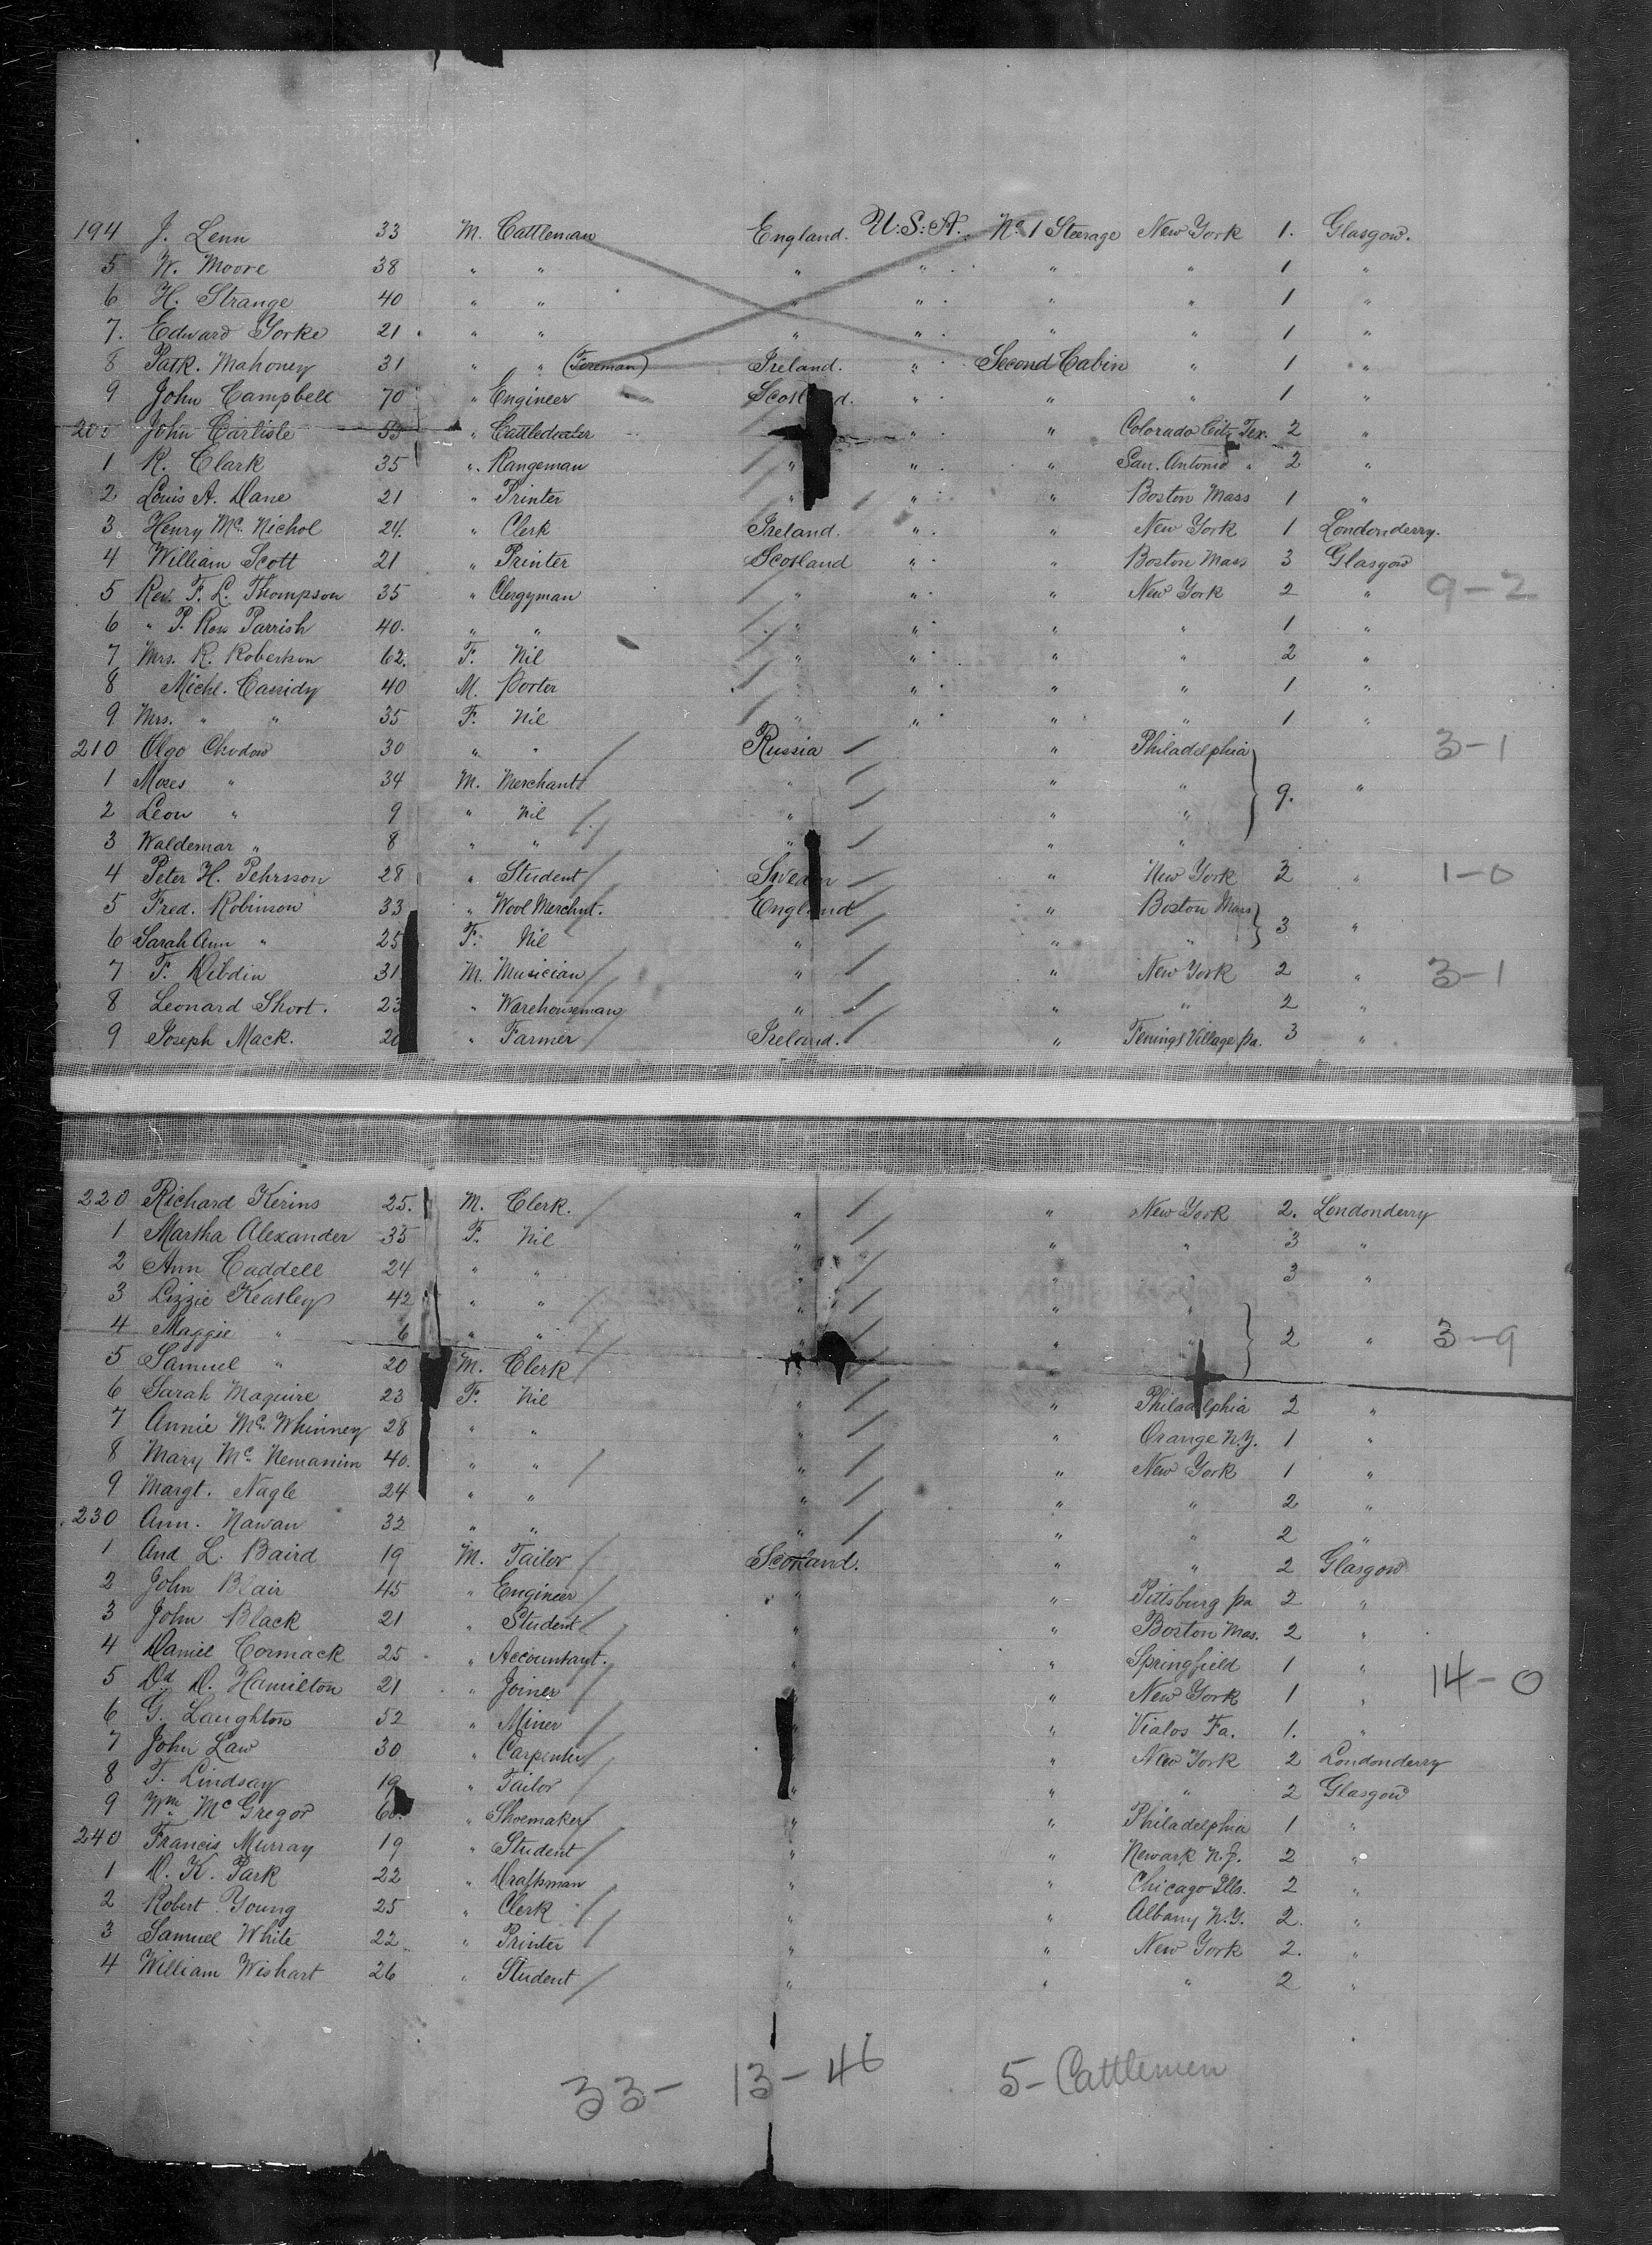 194 J. Lenn 33 M. Cattleman England. U.S.A. No. 1 Steerage New York 1. Glasgow.
5 W. Moore 38 " " " " " " 1 "
6 H. Strange 40 " " " " " " 1 "
7. Edward Yorke 21 " " " " " " 1 "
8 Patk. Mahoney 31 " " (Foreman) Ireland. " Second Cabin " 1 "
9 John Campbell 70 " Engineer Scotland. " " " 1 "
200 John Carlisle 53 " Cattledealer " " Colorado City Tex. 2 "
1 R. Clark 35 " Rangeman " " " San. Antonio " 2 "
2 Louis A. Dane 21 " Printer " " " Boston Mass 1 "
3 Henry Mc. Nichol 24. " Clerk Ireland. " " New York 1 Londonderry.
4 William Scott 21 " Printer Scotland " " Boston Mass 3 Glasgow
5 Rev. F. L. Thompson 35 " Clergyman " " " New York 2 " 9-2
6 " P. Ross Parrish 40. " " " " " " 1 "
7 Mrs. R. Robertson 62. F. Nil " " " " 2 "
8 Michl. Cassidy 40 M. Porter " " " " 1 "
9 Mrs. " " 35 F. Nil " " " " 1 "
210 Olgo Chodow 30 " " Russia " Philadelphia 3-1
1 Moses " 34 M. Merchant " " " 9. "
2 Leon " 9 " Nil " " "
3 Waldemar " 8 " " " " "
4 Peter H. Pehrsson 28 " Student Sweden " New York 3 " 1-0
5 Fred. Robinson 33 " Wool Merchnt. England " Boston Mass
6 Sarah Ann " 25 F. Nil " " " 3 "
7 F. Dibdin 31 M. Musician " " New York 2 " 3-1
8 Leonard Short. 23 " Warehouseman " " " 2 "
9 Joseph Mack. 20 " Farmer Ireland. " Village Pa. 3 "
220 Richard Kerins 25. M. Clerk. " " New York 2. Londonderry
1 Martha Alexander 35 F. Nil " " " 3 "
2 Ann Caddell 24 " " " " " 3 "
3 Lizzie Keasley 42 " " " " "
4 Maggie " 6 " " " " " 2 " 3-9
5 Samuel " 20 M. Clerk "
6 Sarah Maguire 23 F. Nil " " Philadelphia 2 "
7 Annie Mc. Whinney 28 " " " " Orange N.Y. 1 "
8 Mary Mc 40. " " " " New York 1 "
9 Margt. Nagle 24 " " " " " 2 "
230 Ann. Nawan 32 " " " " " 2 "
1 And L. Baird 19 M. Tailor Scotland. " " 2 Glasgow
2 John Blair 45 " Engineer " " Pittsburg Pa 2 "
3 John Black 21 " Student " " Boston Mas. 2 "
4 Daniel Cormack 25 " Accountant. " " Springfield 1 "
5 Dd D. Hamilton 21 " Joiner " " New York 1 " 14-0
6 G. Laughton 52 " Miner " " Fa. 1. "
7 John Law 30 " Carpenter " " New York 2 Londonderry
8 T. Lindsay 19 " Tailor " " " 2 Glasgow
9 Wm. McGregor 60. " Shoemaker " " Philadelphia 1 "
240 Francis Murray 19 " Student " " Newark N.J. 2 "
1 D. K. Park 22 " Draftsman " " Chicago Ills. 2 "
2 Robert Young 25 " Clerk " " Albany N.Y. 2. "
3 Samuel White 22 " Printer " " New York 2. "
4 William Wishart 26 " Student " " " 2 "
33- 13-46 5-Cattlemen